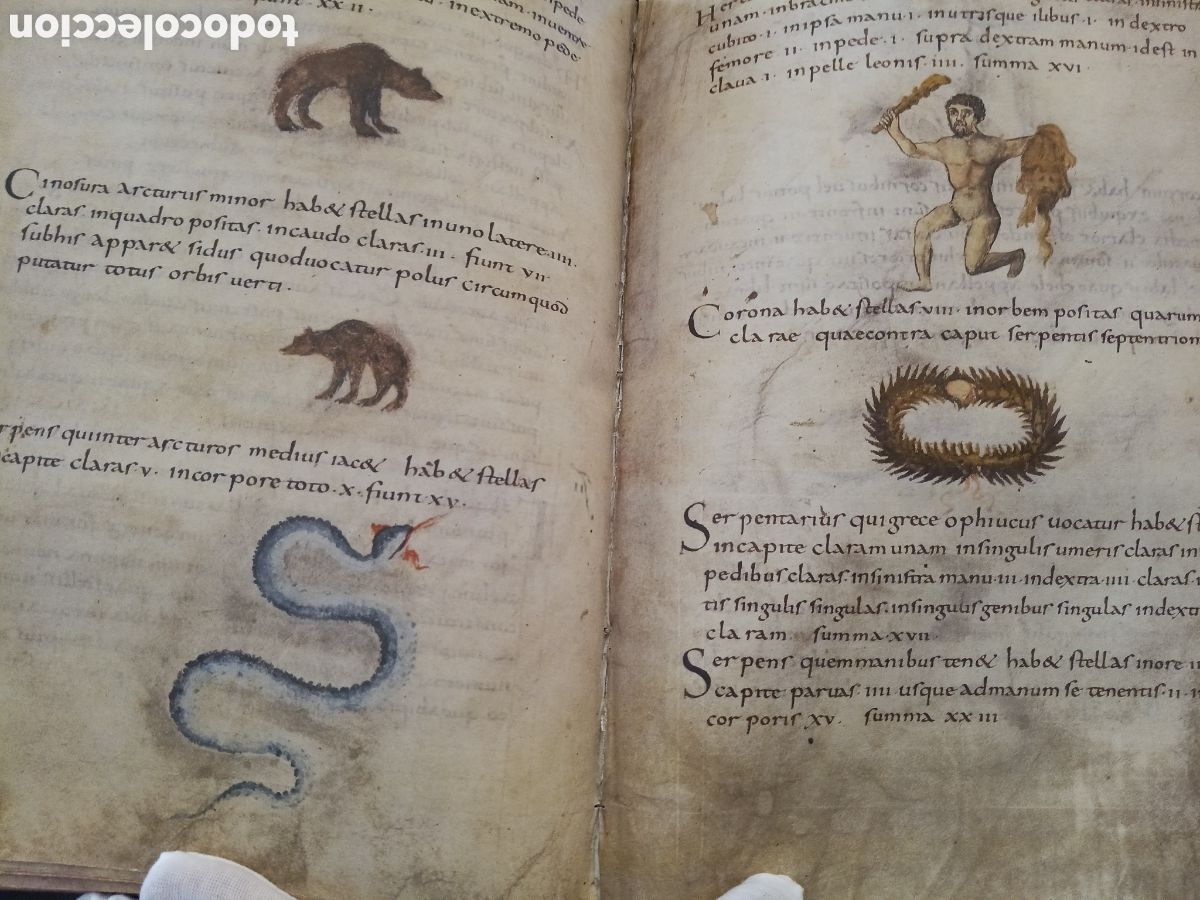 todocoleccion
pede
inextremo pede
unt. xxii.
Cinosura arcturus minor hab& stellas inuno latere.iii.
claras inquadro positas. incaudo claras.iii. fiunt vii
subhis appar& sidus quoduocatur polus circumquod
putatur totus orbis verti.
rpens quiinter arcturos medius iac& hab& stellas
capite claras.v. incorpore toto.x. fiunt.xv.
unam. inbrac
cubito.i. inipsa manu.i. inutrisque ilibus.i. in dextro
femore ii inpede.i. supra dextram manum.idest in
claua i. inpelle leonis.iiii. summa xvi.
Corona hab& stellas.viii. inorbem positas quarum
clarae quaecontra caput serpentis septentrion
Serpentarius quigrece ophiucus uocatur hab& st
incapite claram unam insingulis umeris claras in
pedibus claras.insinistra manu.iii. indextra.iiii. claras.i
tis singulis singulas.insingulis genibus singulas indextr
claram. summa.xvii.
Serpens quemmanibus ten& hab& stellas inore ii
capite paruas iiii usque admanum se tenentis.ii.i
corporis xv. summa xxiii